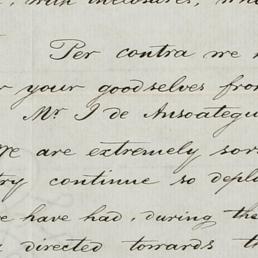 with enclosures,
Per contra we
your goodselves from
Mr J de Ansoategui
We are extremely
try continue so
we have had, during the
directed towards